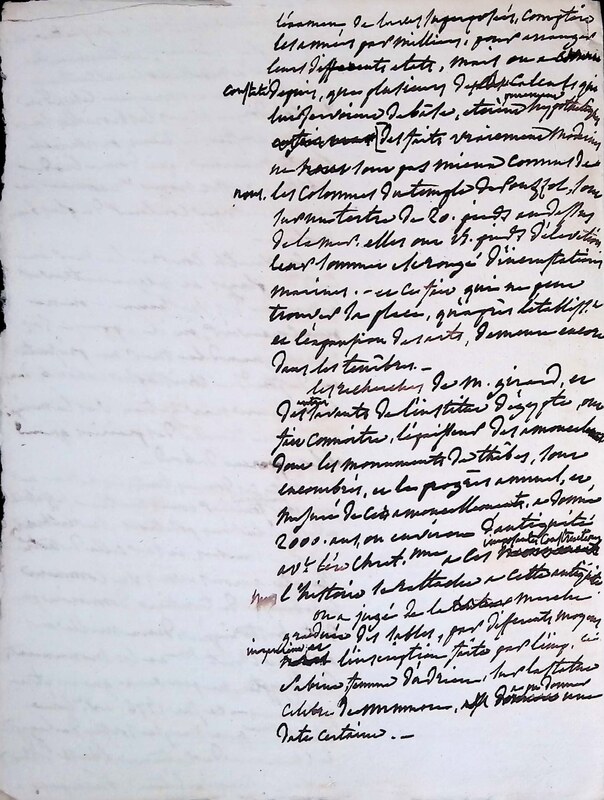 l'examen de laves superposées, compter
les années par milliers, pour arranger
leurs différents états, mais on a
constaté depuis, que plusieurs de calculs qui
lui servirent de base, étoient hypothétiques
[Des faits vraiement modernes
ne sont pas mieux connus de
nous. les colonnes du temple de Pouzzol, sont
sur un tertre de 20. pieds au dessus
de la mer. elles ont 15. pieds d'élévation
leur sommet est rongé d'incrustations
marines. — et ce fait qui ne peut
trouver sa place, qu'après l'établiss.t
et l'expansion des arts, demeure encore
dans les ténèbres. —
les recherches de M. gérard, et
des autres savants de l'institut d'égypte, ont
fait connoitre, l'épaisseur des amoncelemens
dont les monuments de thèbes, sont
encombrés, et le progrès annuel, et
mesuré de ces amoncellements, a donné
2000. ans, ou environ d'antiquité
av.t l'ère Chret. a ces imposantes constructions
l'histoire se rattache a cette antiquité
on a jugé de la marche
graduée des sables, par differents moyens
l'inscription faite par
Sabine femme d'adrien, sur la statue
célèbre de memnon, a pu donner une
date certaine. —